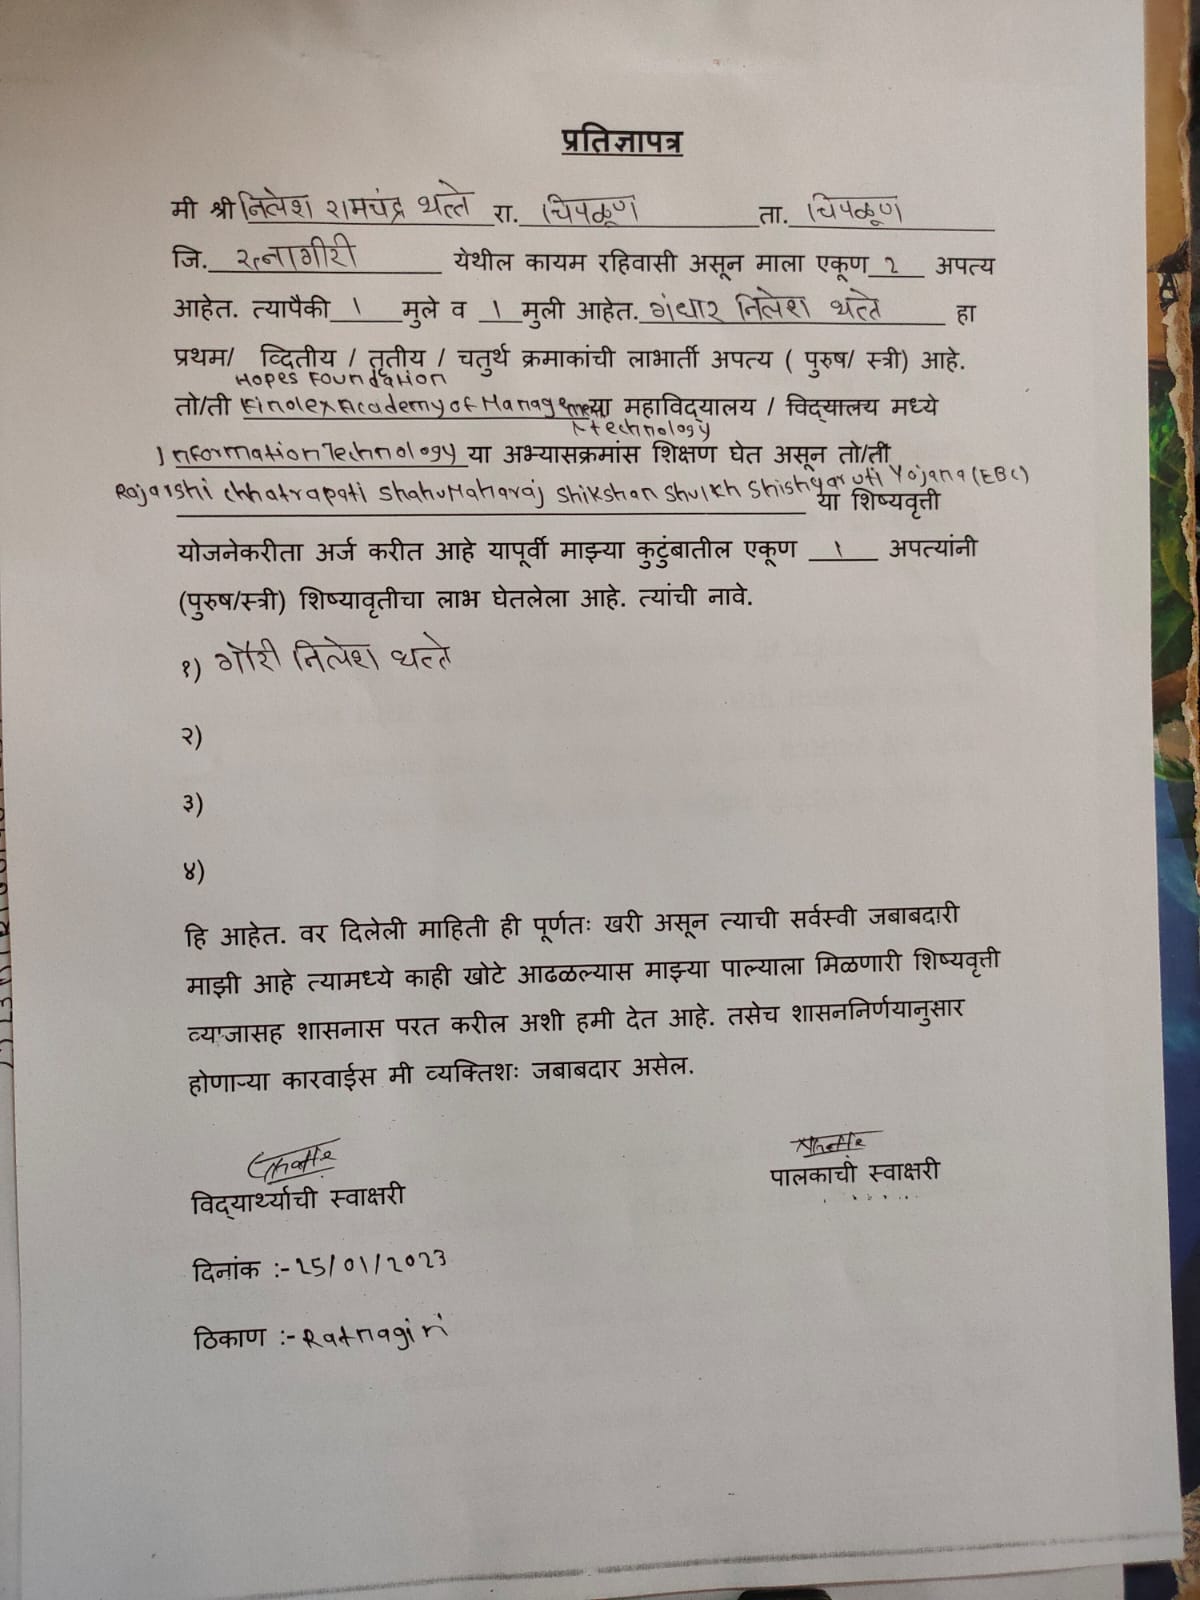 प्रतिज्ञापत्र
मी श्री नितेश रामचंद्र थत्ते रा. चिपळूण ता. चिपळूण
जि. रत्नागीरी येथील कायम रहिवासी असून माला एकूण २ अपत्य
आहेत. त्यापैकी १ मुले व १ मुली आहेत. गंधार नितेश थत्ते हा
प्रथम/ व्दितीय / तृतीय / चतुर्थ क्रमाकांची लाभार्ती अपत्य ( पुरुष/ स्त्री) आहे.
Hopes Foundation
तो/ती Finolex Academy of Management या महाविद्यालय / विद्यालय मध्ये
& technology
Information Technology या अभ्यासक्रमांस शिक्षण घेत असून तो/ती
Rajarshi Chhatrapati Shahu Maharaj Shikshan Shulkh Shishyavruti Yojana (EBC)
या शिष्यवृत्ती
योजनेकरीता अर्ज करीत आहे यापूर्वी माझ्या कुटुंबातील एकूण १ अपत्यांनी
(पुरुष/स्त्री) शिष्यावृतीचा लाभ घेतलेला आहे. त्यांची नावे.
१) गौरी नितेश थत्ते
२)
३)
४)
हि आहेत. वर दिलेली माहिती ही पूर्णतः खरी असून त्याची सर्वस्वी जबाबदारी
माझी आहे त्यामध्ये काही खोटे आढळल्यास माझ्या पाल्याला मिळणारी शिष्यवृत्ती
व्याजासह शासनास परत करील अशी हमी देत आहे. तसेच शासननिर्णयानुसार
होणाऱ्या कारवाईस मी व्यक्तिशः जबाबदार असेल.
विद्यार्थ्याची स्वाक्षरी पालकाची स्वाक्षरी
दिनांक :- 25/01/2023
ठिकाण :- Ratnagiri